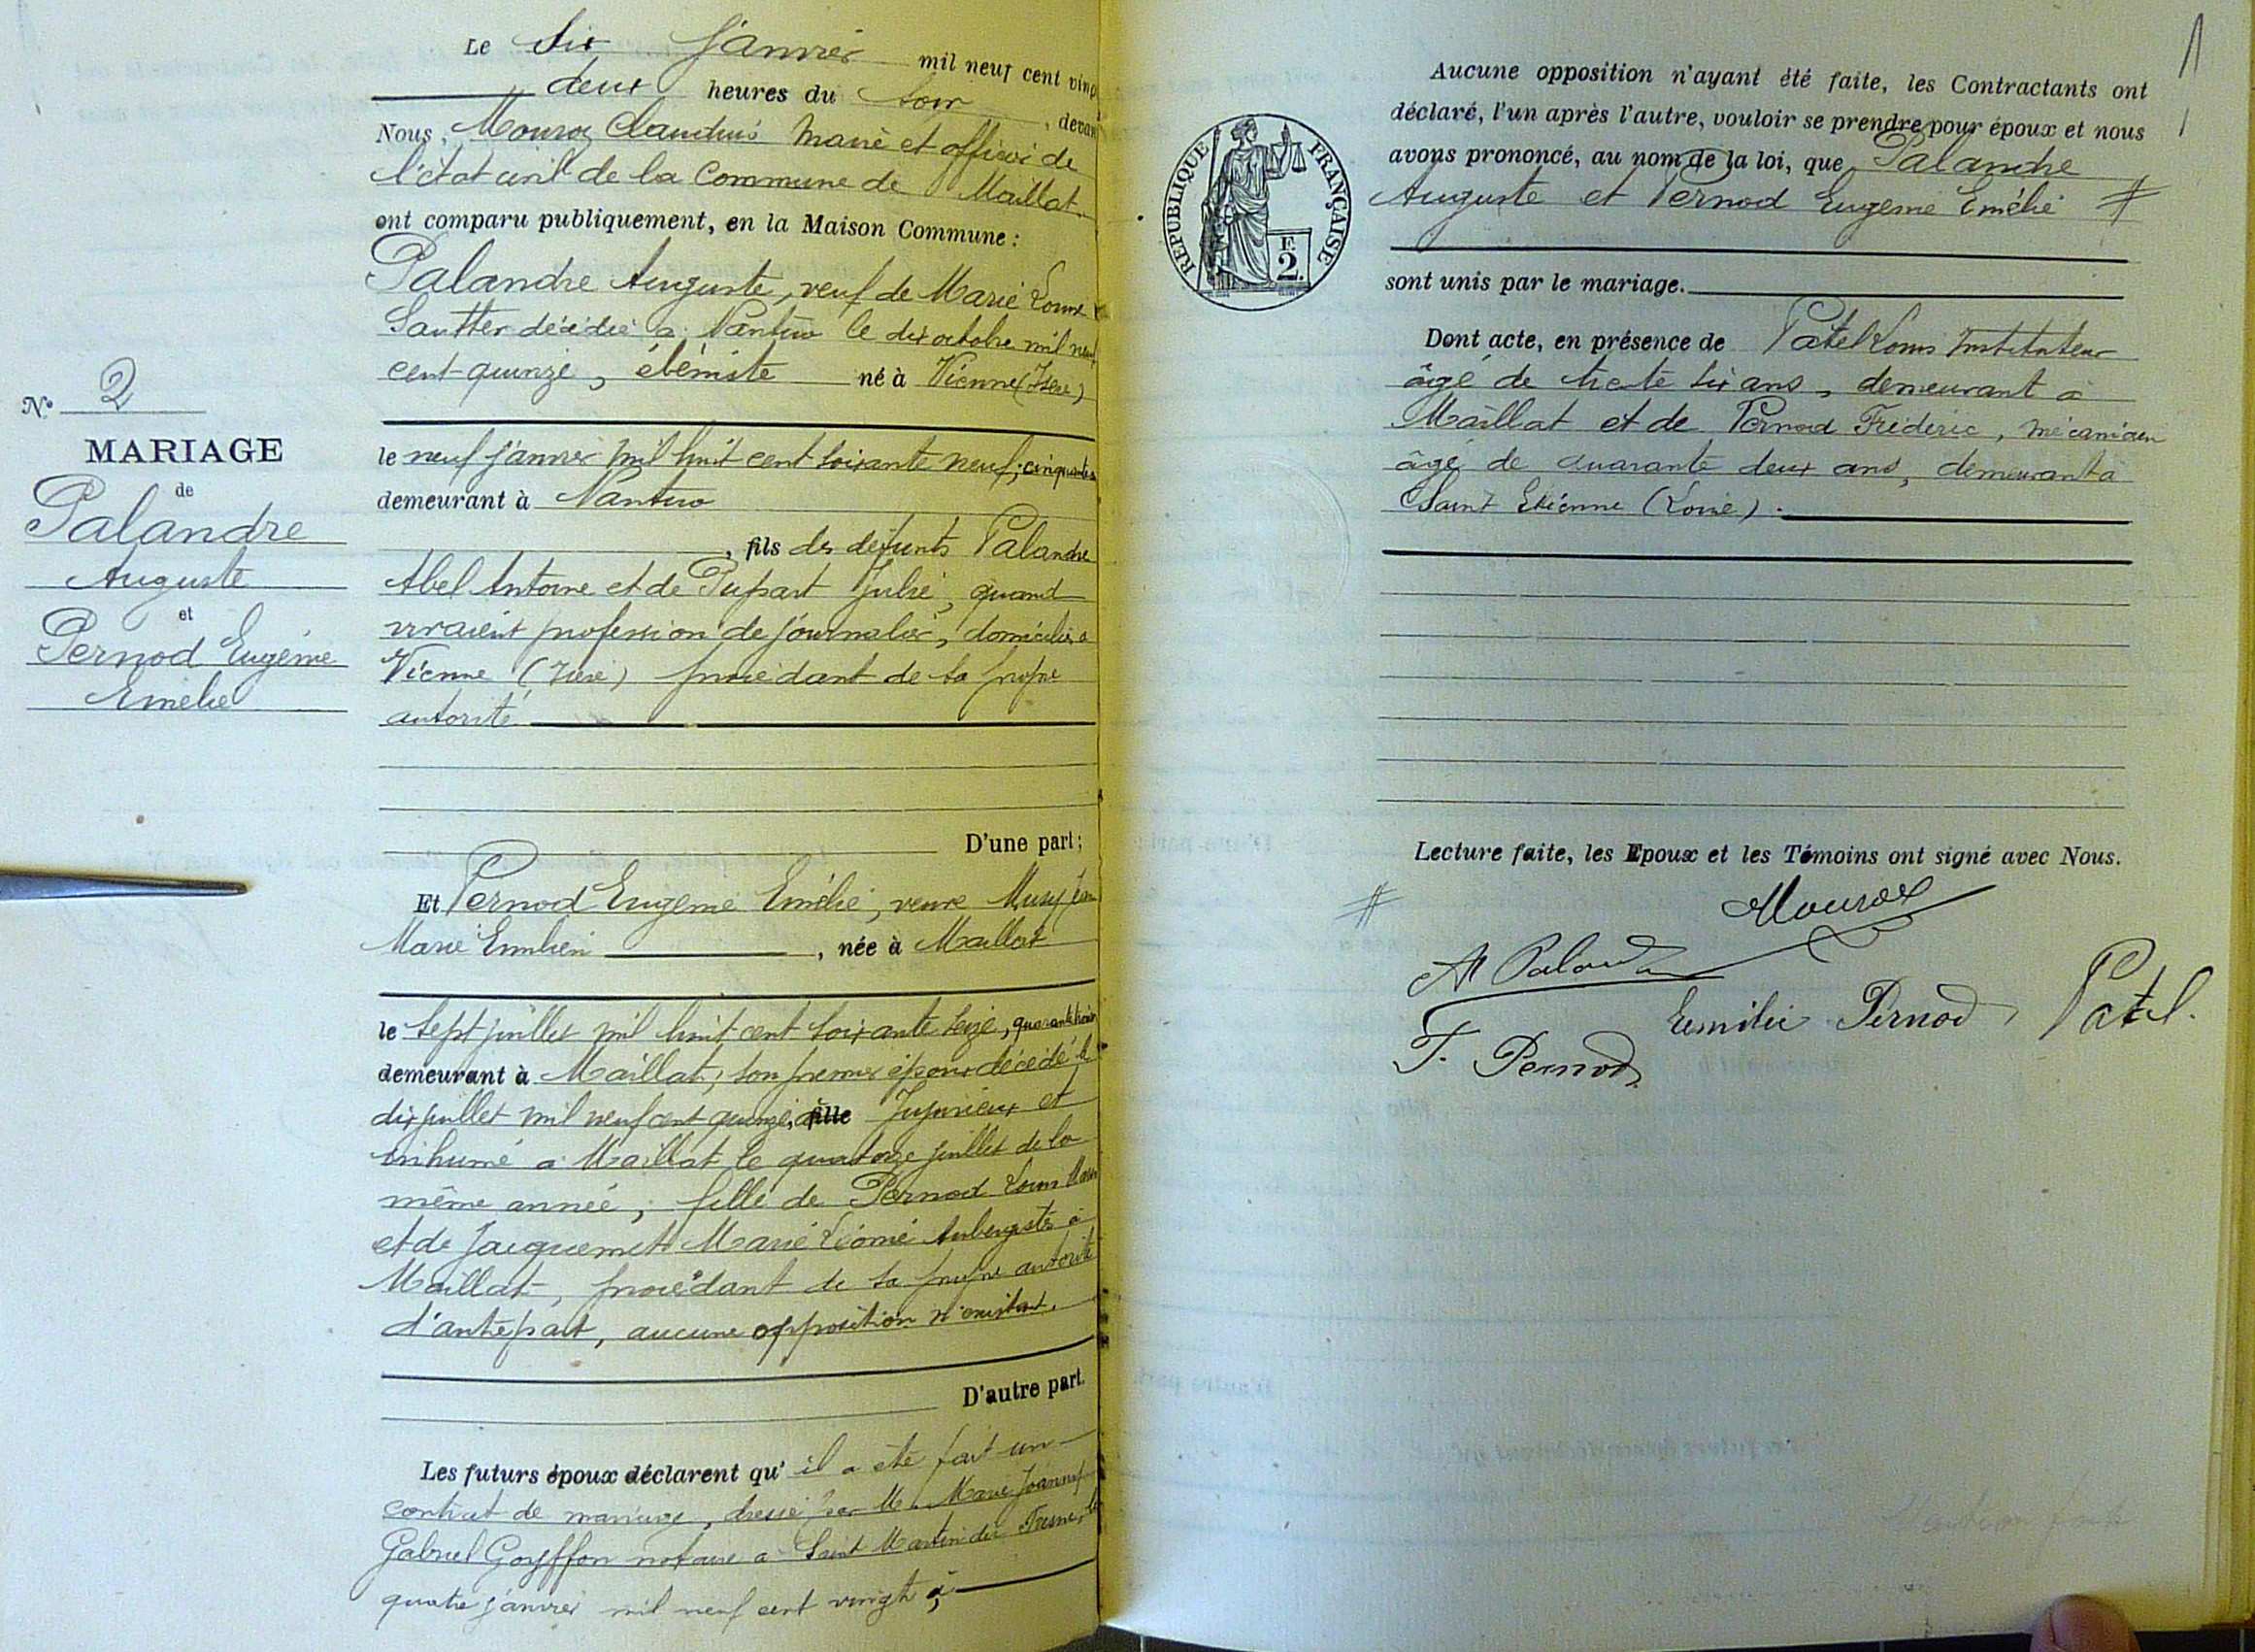 Le Six Janvier mil neuf cent vingt
deux heures du soir, devant
Nous, Mouroz Claudius Maire et officier de
l'état civil de la Commune de Maillat
ont comparu publiquement, en la Maison Commune :
Palandre Auguste, veuf de Marie Louise
Sautter décédée à Nantua le dix octobre mil neuf
cent quinze, ébéniste né à Vienne (Isère)
le neuf janvier mil huit cent soixante neuf, cinquante
demeurant à Nantua
, fils des défunts Palandre
Abel Antoine et de Dupart Julie, quand
vivaient profession de journalier, domiciliés à
Vienne (Isère) procédant de sa propre
autorité
D'une part ;
N° 2
MARIAGE
de
Palandre
Auguste
et
Pernod Eugénie
Emélie
Et Pernod Eugénie Emélie, veuve Musy Jean
Marie Emilien, née à Maillat
le sept juillet mil huit cent soixante seize, quarante trois
demeurant à Maillat, son premier époux décédé le
dix juillet mil neuf cent quinze, à fille Jujurieux et
inhumé à Maillat le quatorze juillet de la
même année, fille de Pernod Louis
et de Jacquemet Marie Léonie Aubergistes à
Maillat, procédant de sa propre autorité
d'autre part, aucune opposition n'existant.
D'autre part.
Les futurs époux déclarent qu'il a été fait un
contrat de mariage, dressé par Me Marie Joannes
Gabriel Goyffon notaire à Saint Martin du Fresne, le
quatre janvier mil neuf cent vingt ;
1
RÉPUBLIQUE FRANÇAISE
F.
2.
Aucune opposition n'ayant été faite, les Contractants ont
déclaré, l'un après l'autre, vouloir se prendre pour époux et nous
avons prononcé, au nom de la loi, que Palandre
Auguste et Pernod Eugénie Emélie #
sont unis par le mariage.
Dont acte, en présence de Patel Louis Instituteur
âgé de trente six ans, demeurant à
Maillat et de Pernod Frédéric, mécanicien
âgé de quarante deux ans, demeurant à
Saint Etienne (Loire).
Lecture faite, les Epoux et les Témoins ont signé avec Nous.
#
Mouroz
A Paland
Emilie Pernod Patel.
F. Pernod